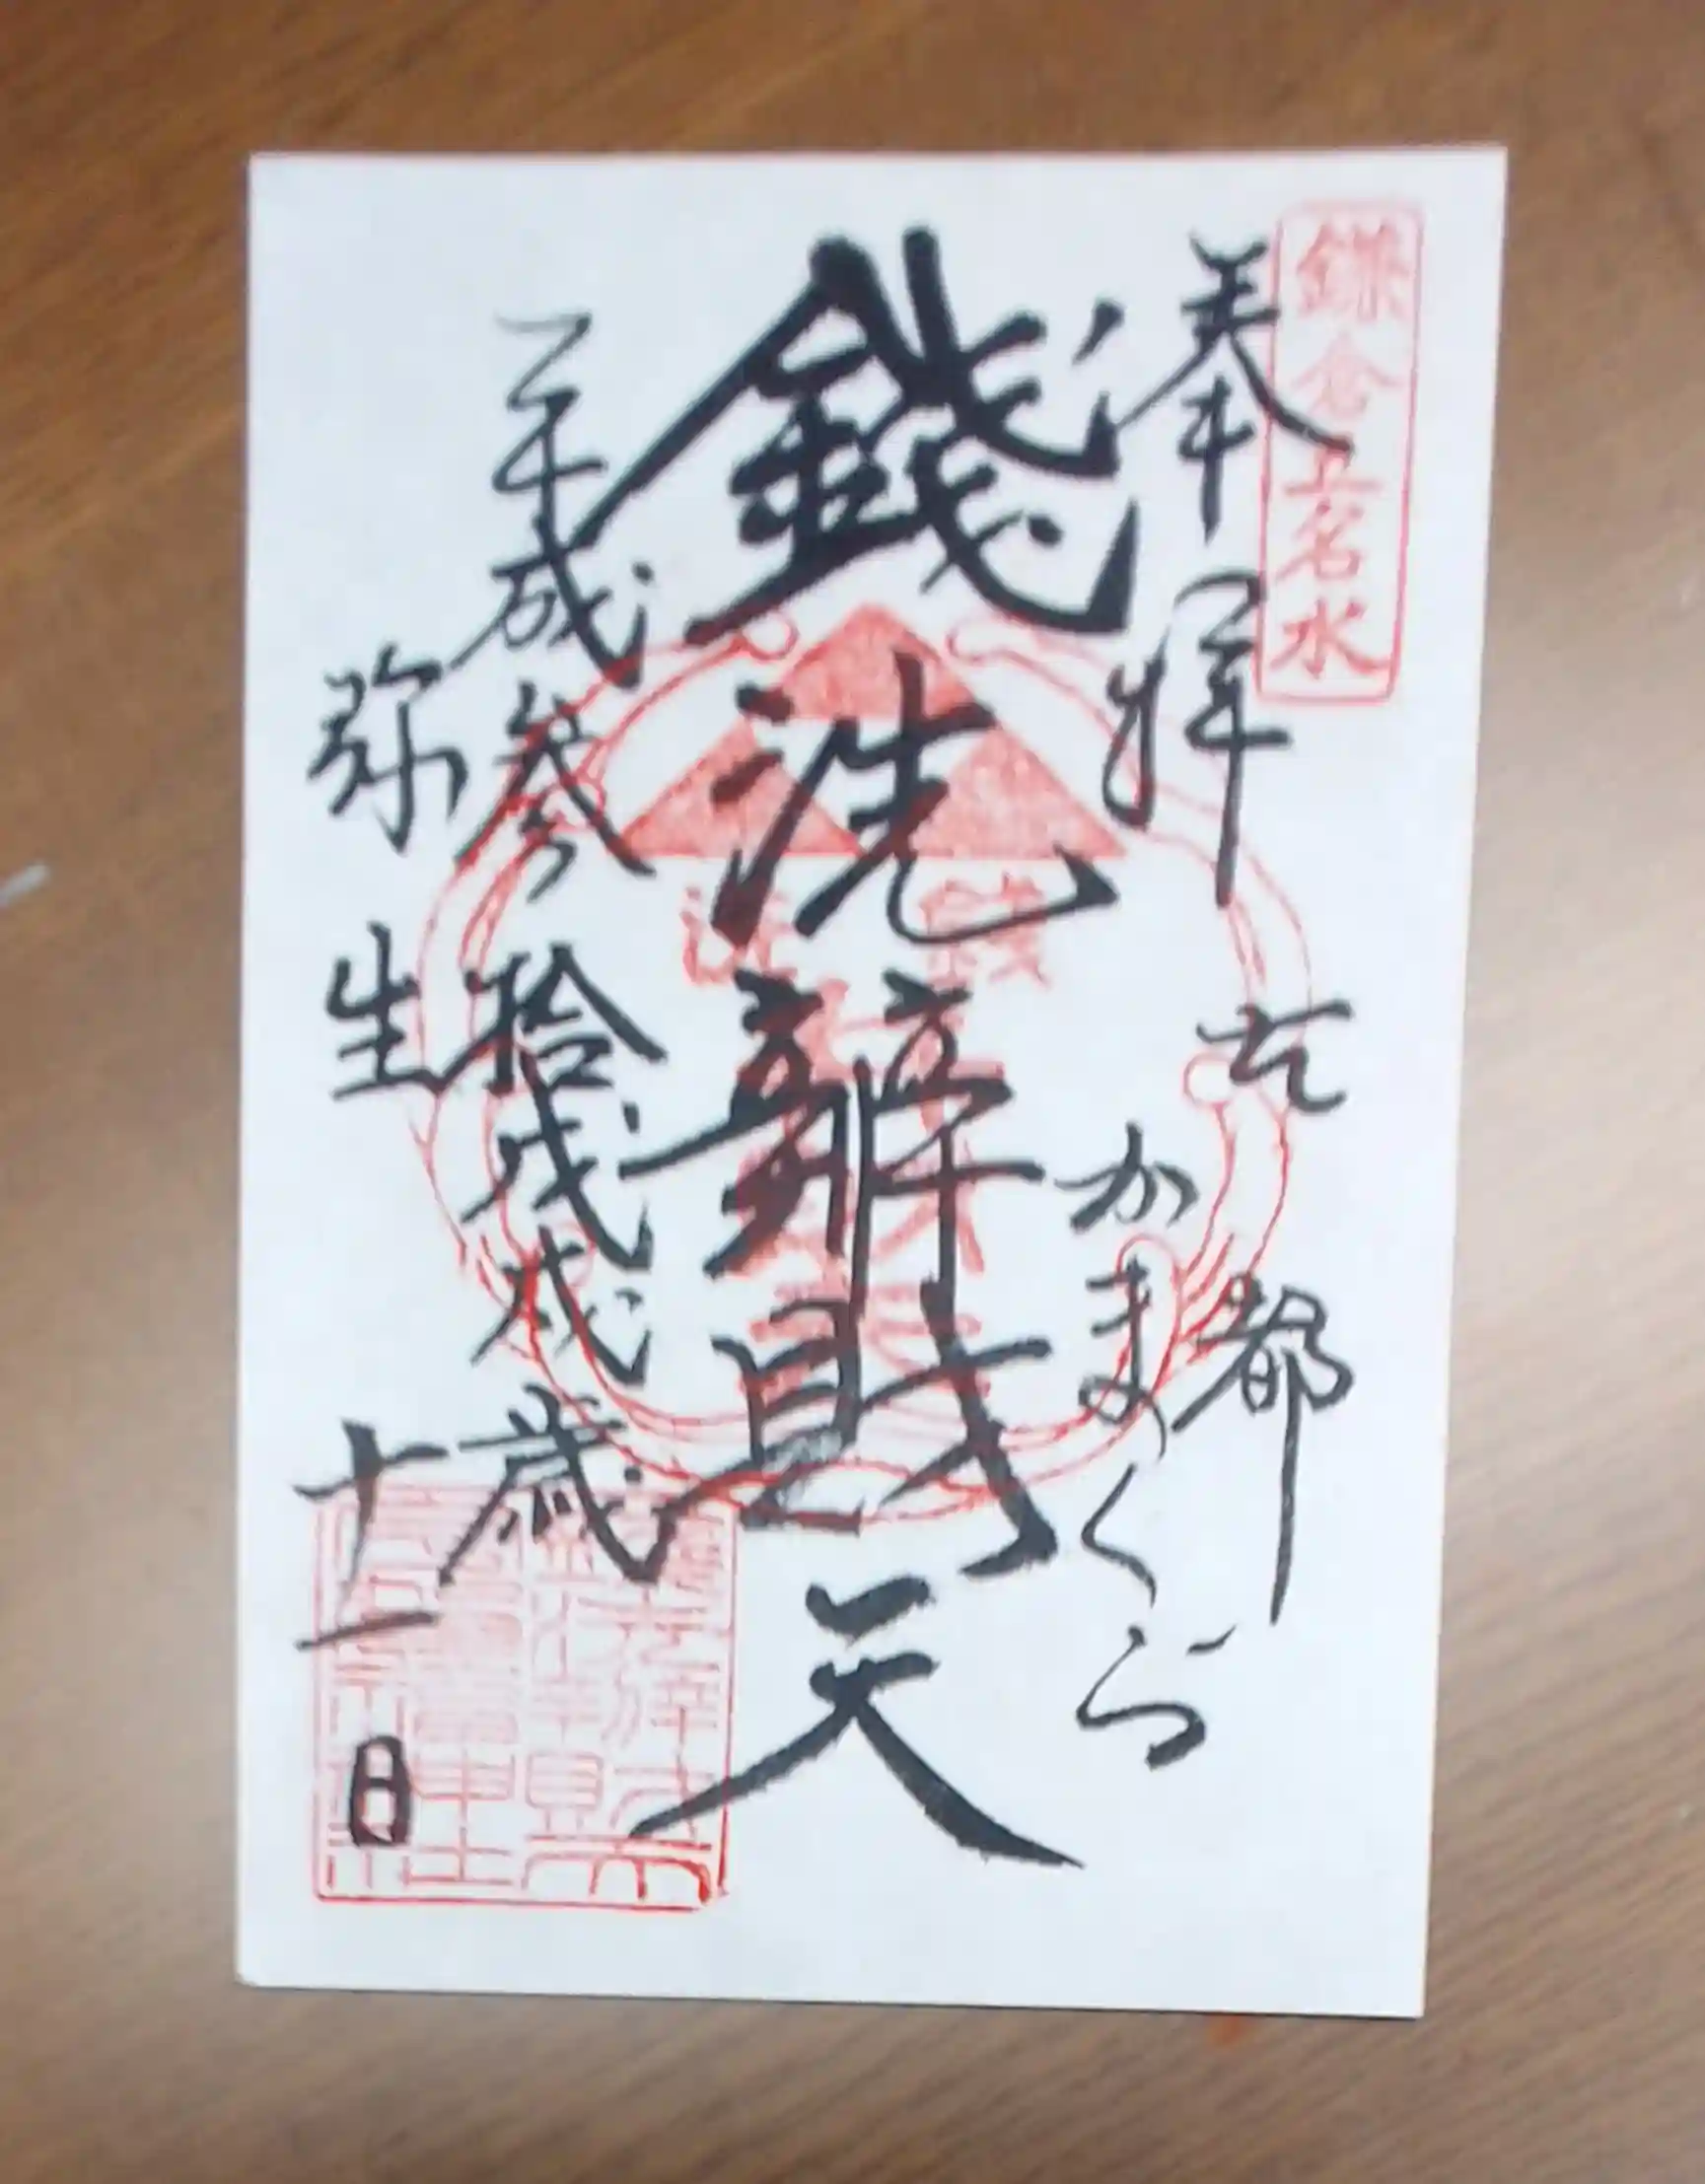 鎌倉五名水
奉拝
古都
かまくら
錢洗辨財天
平成参拾戊戌歳
弥生十一日